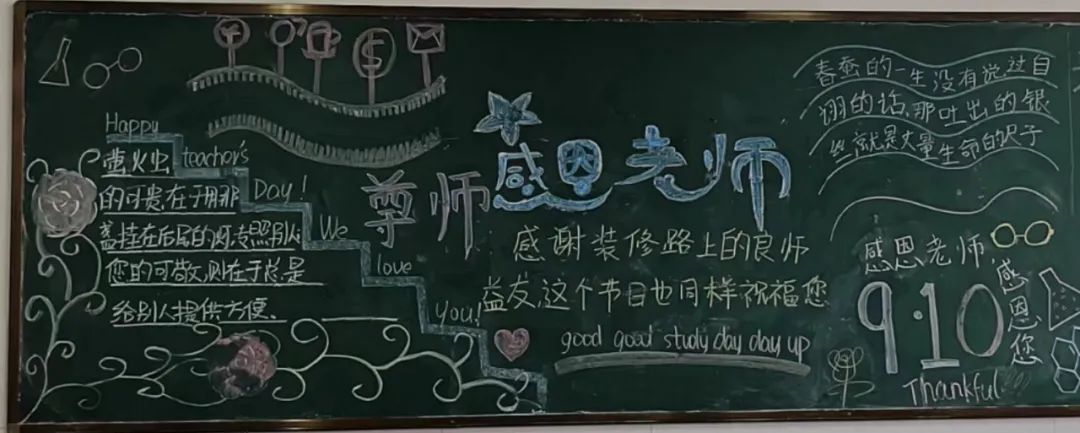 Happy
teacher's
Day!
We
love
you!
萤火虫
的可贵,在于用那
盏挂在后尾的灯,专照别人
您的可敬,则在于总是
给别人提供方便.
尊师
感恩老师
感谢装修路上的良师
益友,这个节日也同样祝福您
good good study day day up
春蚕的一生没有说过自
诩的话,那吐出的银
丝就是丈量生命的尺子
感恩老师,
感恩您
9.10
Thankful